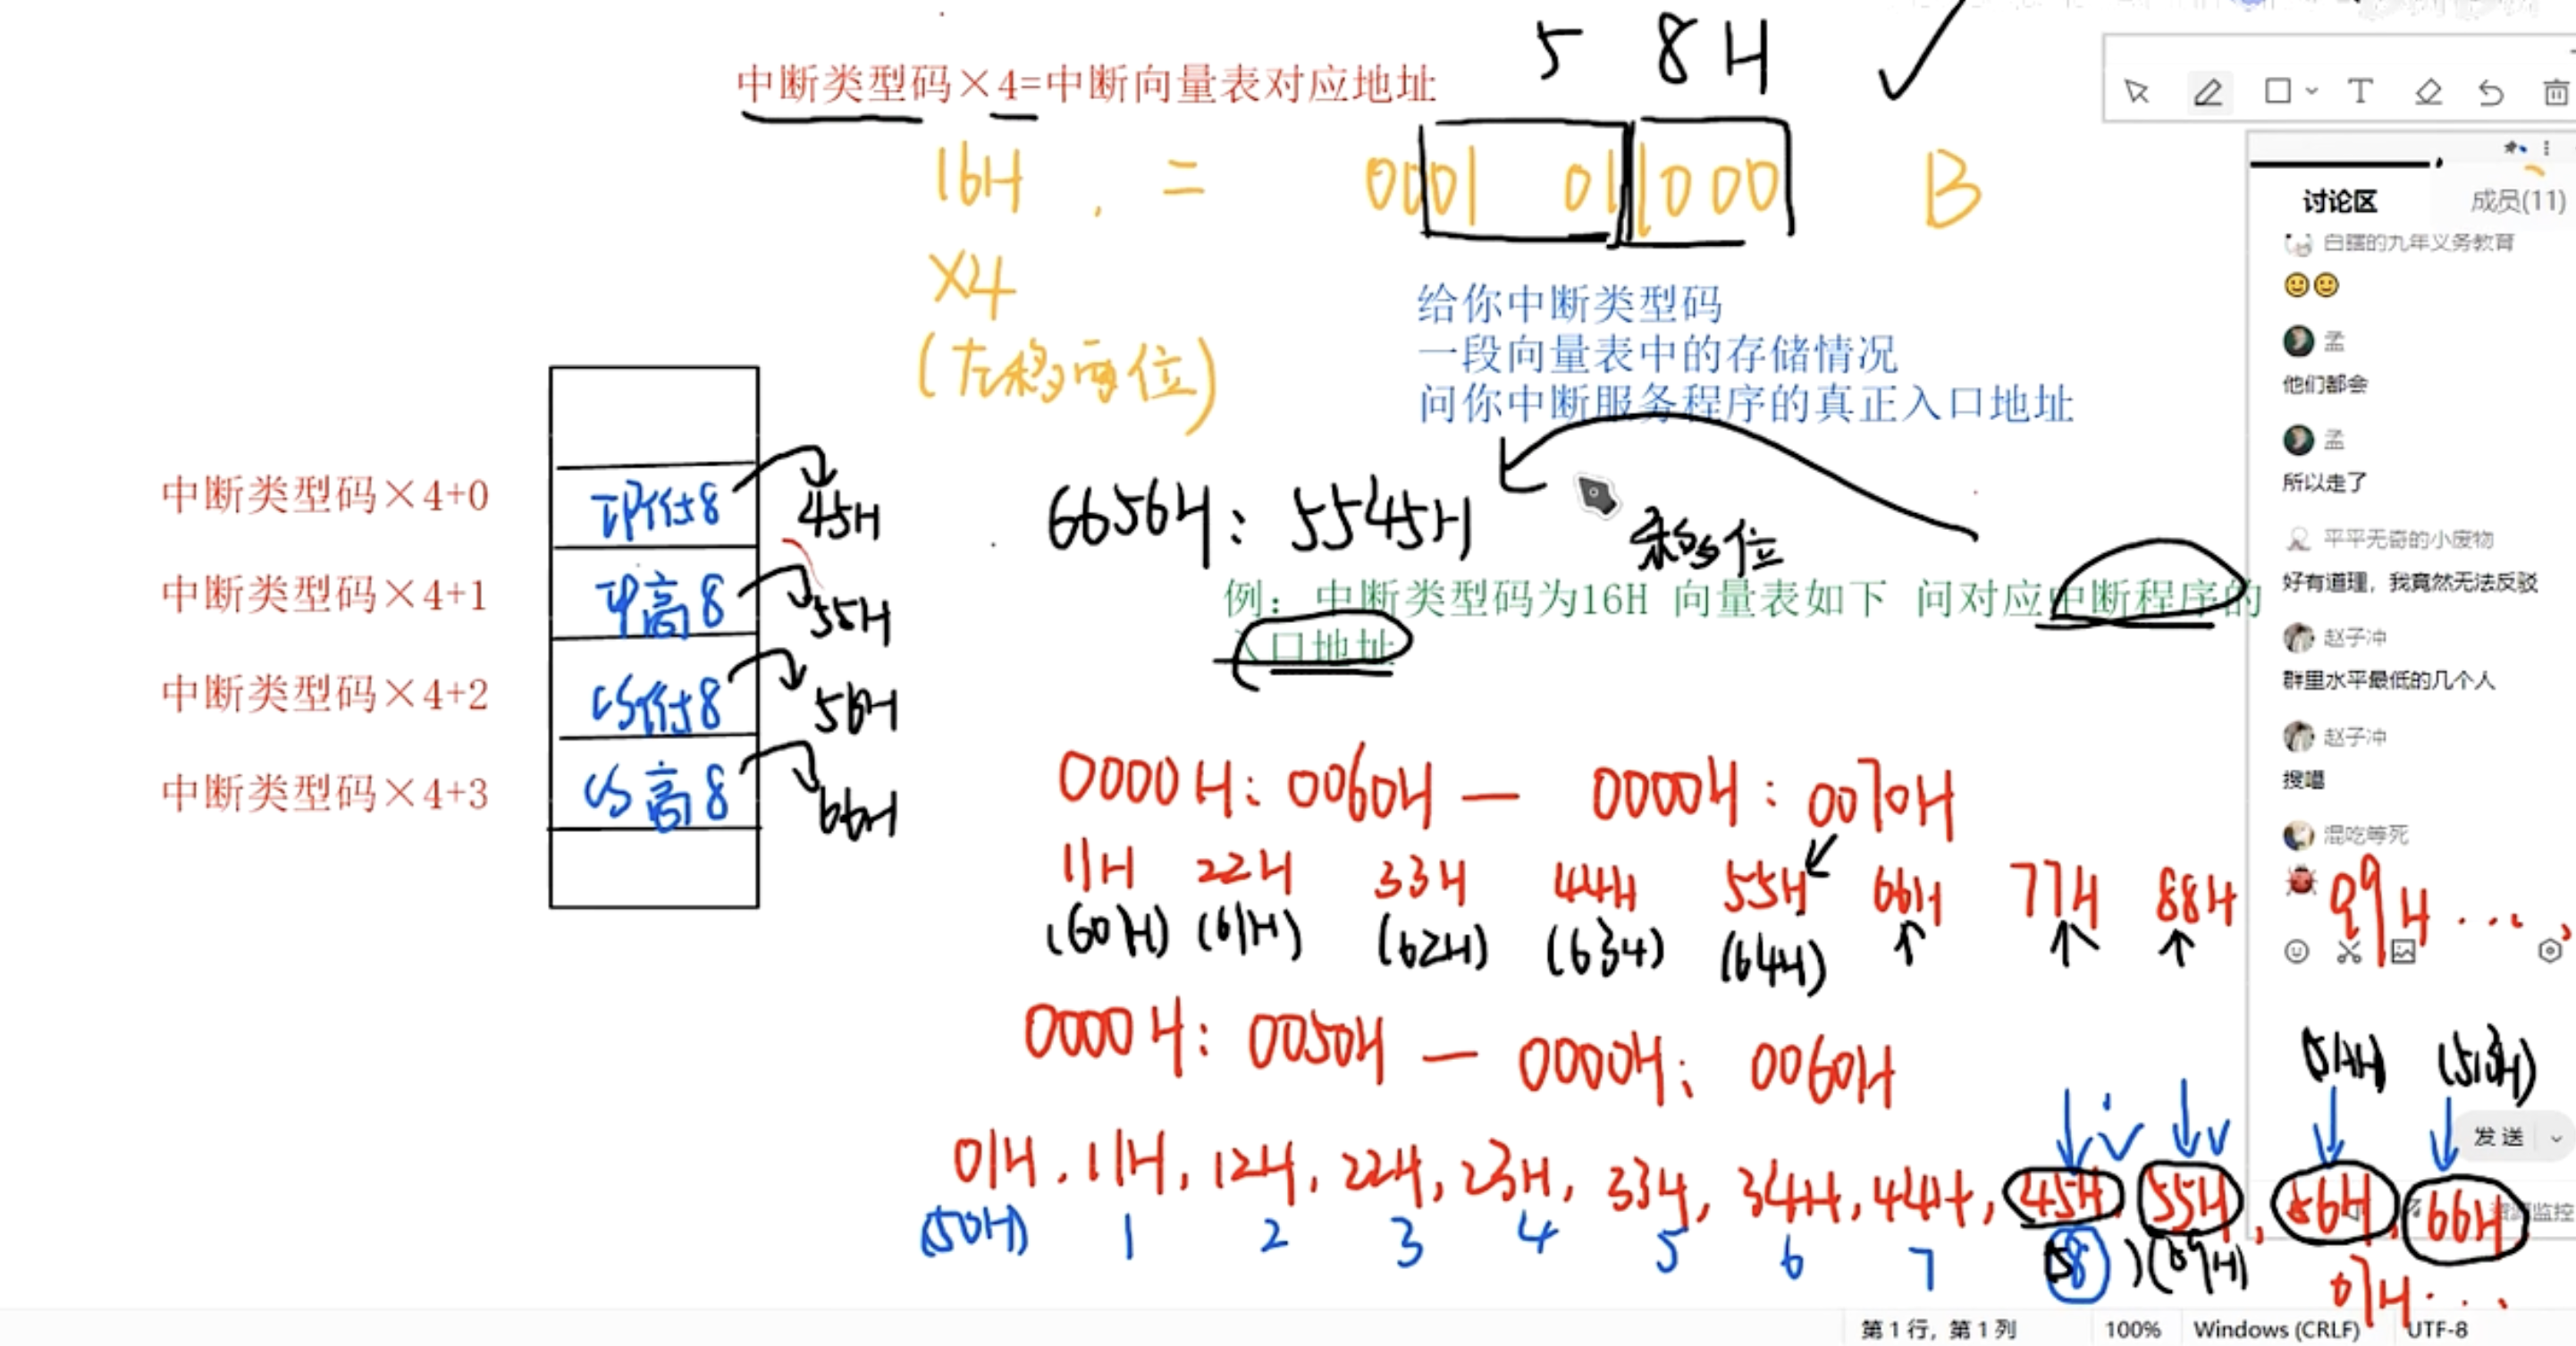 5 8H
中断类型码×4=中断向量表对应地址
16H = 0001 011000 B
×4
(左移两位)
给你中断类型码
一段向量表中的存储情况
问你中断服务程序的真正入口地址
中断类型码×4+0 IP低8 45H
中断类型码×4+1 IP高8 55H
中断类型码×4+2 CS低8 56H
中断类型码×4+3 CS高8 66H
6656H: 5545H
移位
例: 中断类型码为16H 向量表如下 问对应中断程序的
入口地址
0000H: 0060H — 0000H: 0070H
11H 22H 33H 44H 55H 66H 77H 88H 99H ...
(60H) (61H) (62H) (63H) (64H)
0000H: 0050H — 0000H: 0060H
(5AH) (5BH)
01H, 11H, 12H, 22H, 23H, 33H, 34H, 44H, 45H, 55H, 56H, 66H
(50H) 1 2 3 4 5 6 7 (58) (59H)
67H...
讨论区 成员(11)
白瞎的九年义务教育
孟
他们都会
孟
所以走了
平平无奇的小废物
好有道理，我竟然无法反驳
赵子冲
群里水平最低的几个人
赵子冲
搜噶
混吃等死
发送
资源监控
第1行，第1列 100% Windows (CRLF) UTF-8